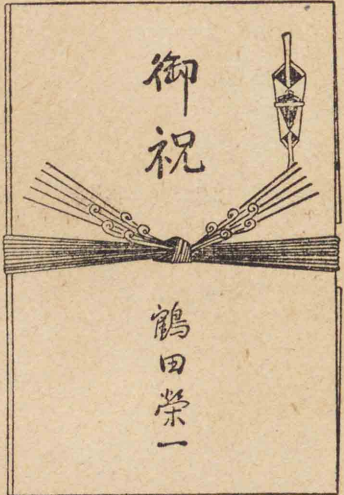 御祝
鶴田榮一